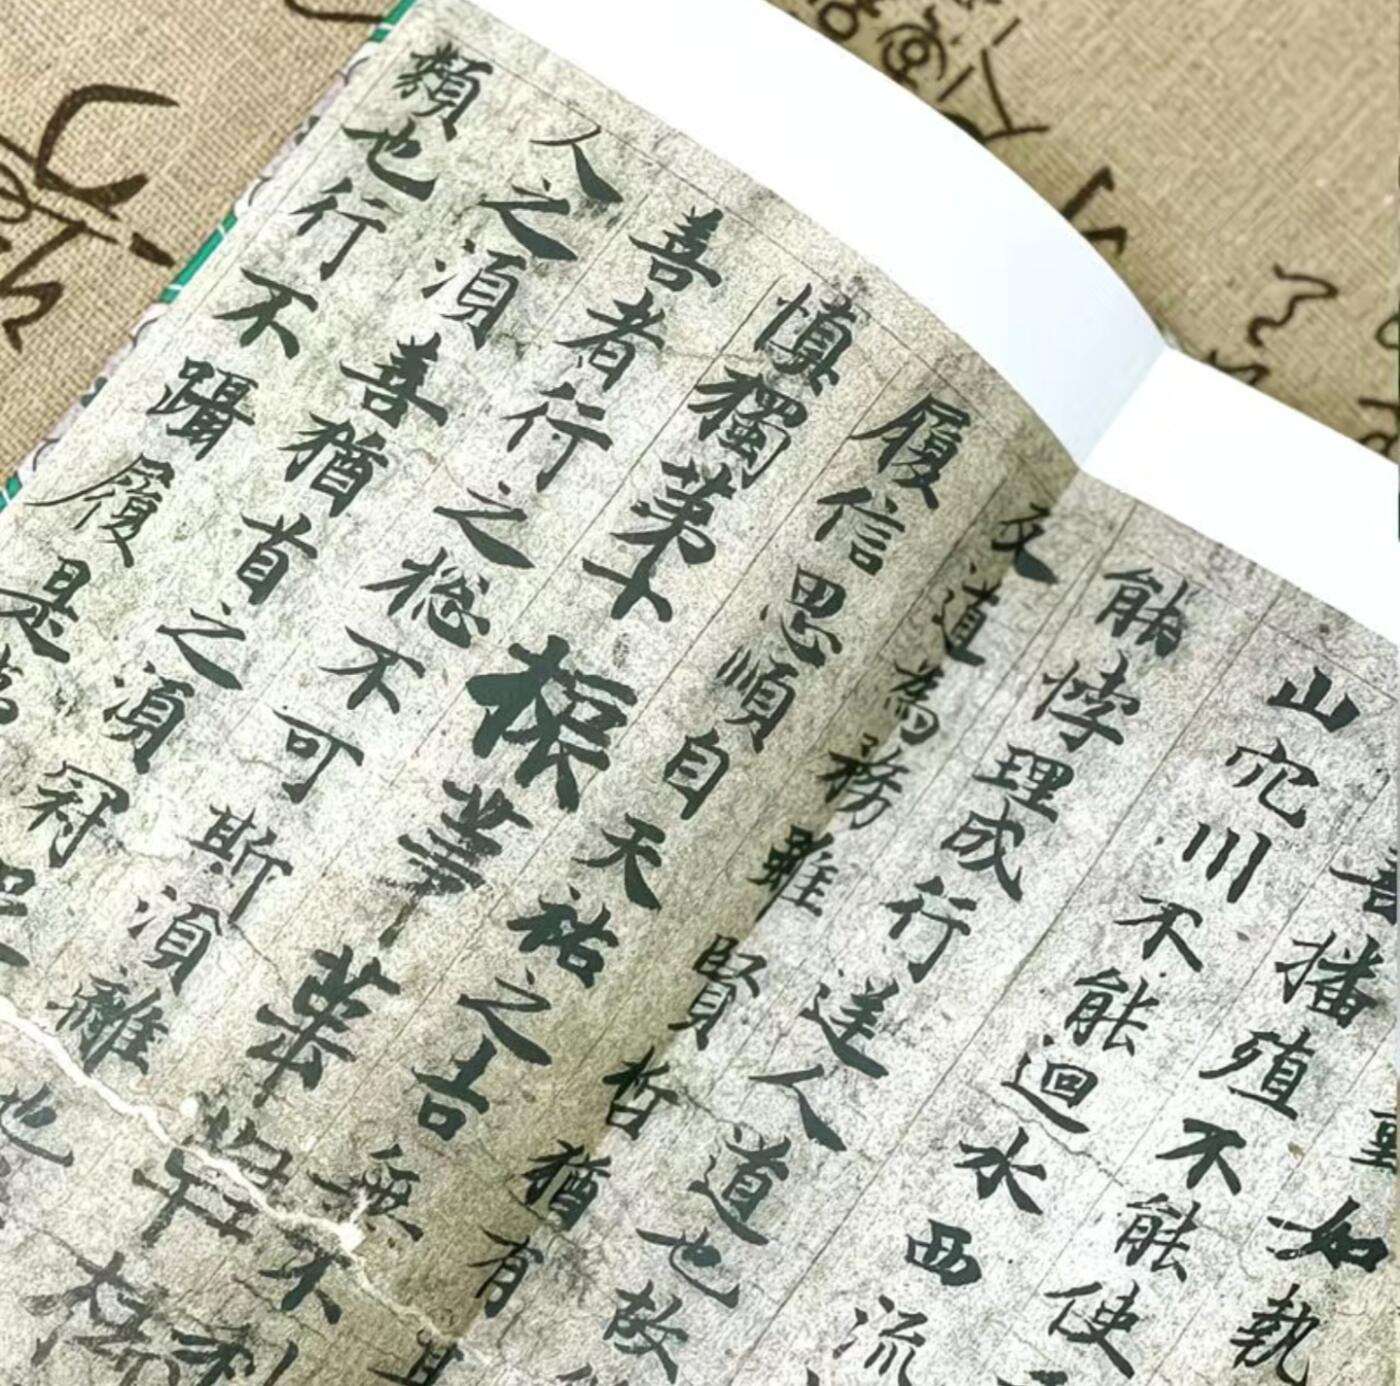 重如執
善播殖不能使
山穴川不能迴水西流
能悖理成行逆人道也故
反道為務雖賢哲猶有
履信思順自天祐之吉無不利
慎獨第十
善者行之揔不可斯須離也
人之須善猶首之須冠
類也行不躡履是